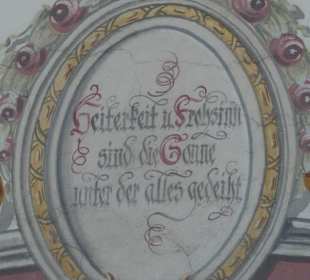 Heiterkeit u. Frohsinn
sind die Sonne
unter der alles gedeiht.